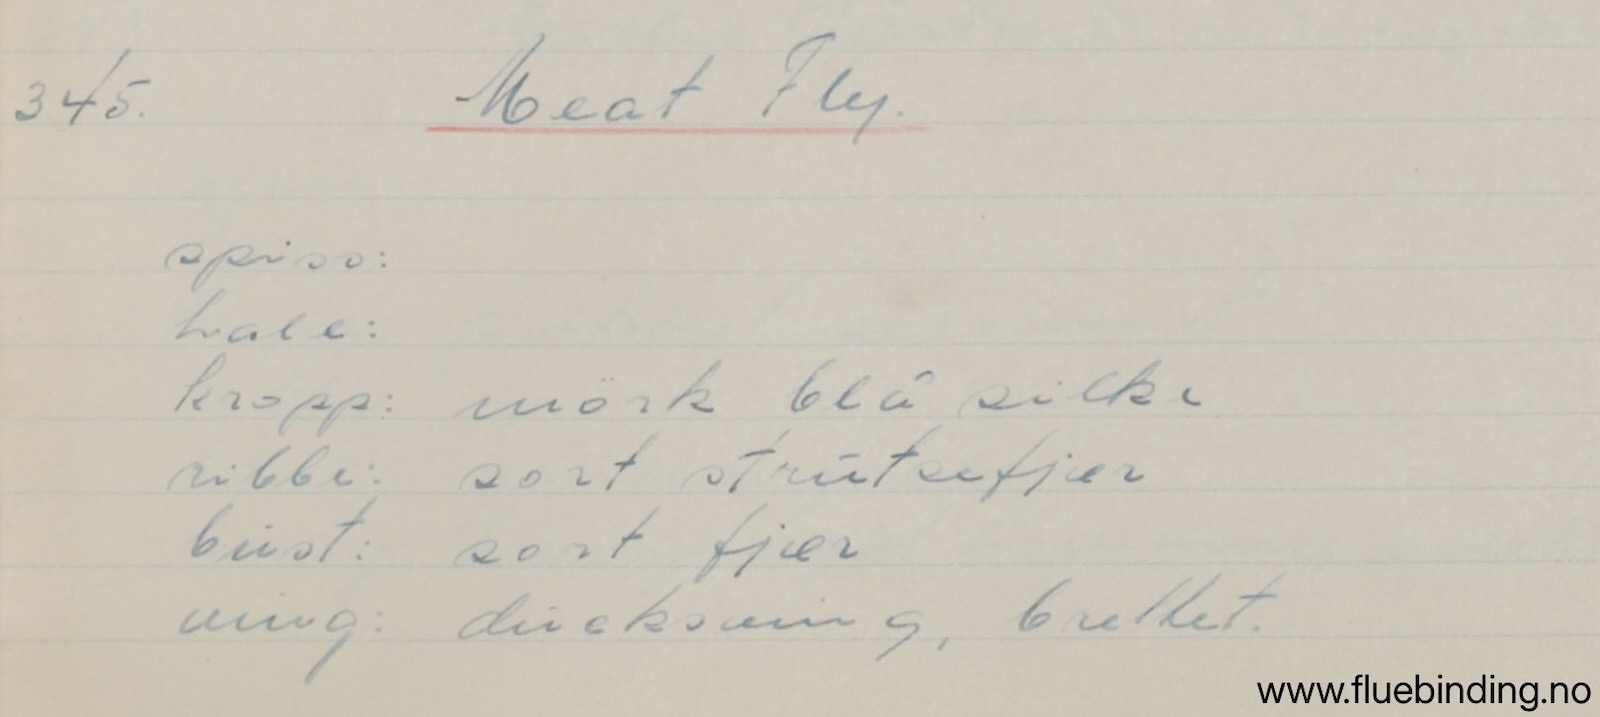 345. Meat Fly.
spiss:
hale:
kropp: mörk blå silke
ribbe: sort strutsefjær
bust: sort fjær
wing: duckswing, brettet.
www.fluebinding.no